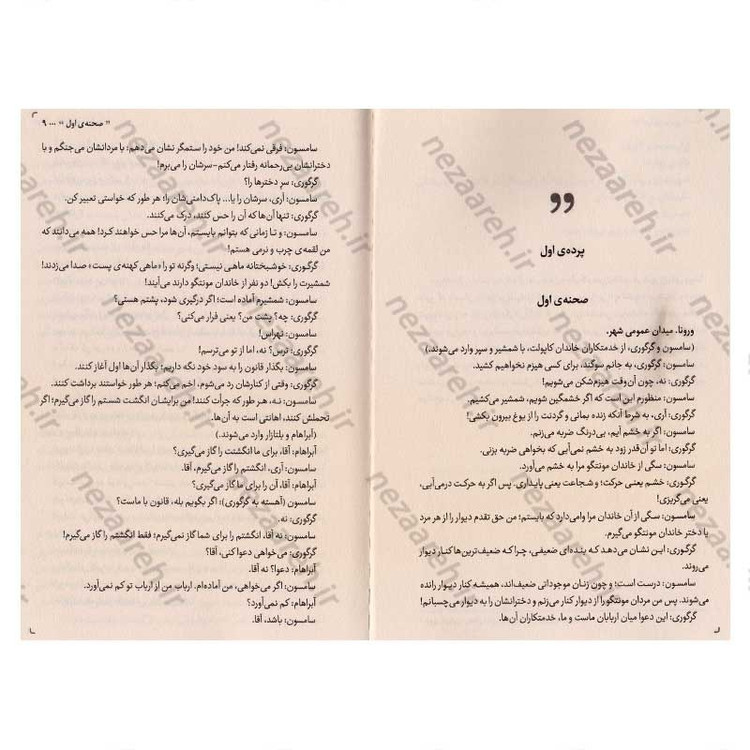 ”
پرده‌ی اول
صحنه‌ی اول
ورونا. میدان عمومی شهر.
(سامسون و گرگوری، از خدمتکاران خاندان کاپولت، با شمشیر و سپر وارد می‌شوند.)
سامسون: گرگوری، به جانم سوگند، برای کسی هیزم نخواهیم کشید.
گرگوری: نه، چون آن‌وقت هیزم‌شکن می‌شویم!
سامسون: منظورم این است که اگر خشمگین شویم، شمشیر می‌کشیم.
گرگوری: آری، به شرط آنکه زنده بمانی و گردنت را از یوغ بیرون بکشی!
سامسون: اگر به خشم آیم، بی‌درنگ ضربه می‌زنم.
گرگوری: اما تو آن‌قدر زود به خشم نمی‌آیی که بخواهی ضربه بزنی.
سامسون: سگی از خاندان مونتگو مرا به خشم می‌آورد.
گرگوری: خشم یعنی حرکت؛ و شجاعت یعنی پایداری. پس اگر به حرکت درمی‌آیی،
یعنی می‌گریزی!
سامسون: سگی از آن خاندان مرا وامی‌دارد که بایستم؛ من حق تقدم دیوار را از هر مرد
یا دختر خاندان مونتگو می‌گیرم.
گرگوری: این نشان می‌دهد که بنده‌ای ضعیفی، چرا که ضعیف‌ترین‌ها کنار دیوار
می‌روند.
سامسون: درست است؛ و چون زنان موجوداتی ضعیف‌اند، همیشه کنار دیوار رانده
می‌شوند. پس من مردان مونتگو را از دیوار کنار می‌زنم و دخترانشان را به دیوار می‌چسبانم!
گرگوری: این دعوا میان اربابان ماست و ما، خدمتکاران آن‌ها.
” صحنه‌ی اول “ ... ۹
سامسون: فرقی نمی‌کند! من خود را ستمگر نشان می‌دهم؛ با مردانشان می‌جنگم و با
دخترانشان بی‌رحمانه رفتار می‌کنم-سرشان را می‌برم!
گرگوری: سر دخترها را؟
سامسون: آری، سرشان را یا... پاک‌دامنی‌شان را؛ هر طور که خواستی تعبیر کن.
گرگوری: تنها آن‌ها که آن را حس کنند، درک می‌کنند.
سامسون: و تا زمانی که بتوانم بایستم، آن‌ها مرا حس خواهند کرد! همه می‌دانند که
من لقمه‌ی چرب و نرمی هستم!
گرگوری: خوشبختانه ماهی نیستی؛ وگرنه تو را «ماهی کهنه‌ی پست» صدا می‌زدند!
شمشیرت را بکش! دو نفر از خاندان مونتگو دارند می‌آیند!
سامسون: شمشیرم آماده است؛ اگر درگیری شود، پشتم هستی؟
گرگوری: چه؟ پشت من؟ یعنی فرار می‌کنی؟
سامسون: نهراس!
گرگوری: ترس؟ نه، اما از تو می‌ترسم!
سامسون: بگذار قانون را به سود خود نگه داریم؛ بگذار آن‌ها اول آغاز کنند.
گرگوری: وقتی از کنارشان رد می‌شوم، اخم می‌کنم؛ هر طور خواستند برداشت کنند.
سامسون: نه، هر طور که جرأت کنند! من برایشان انگشت شستم را گاز می‌گیرم؛ اگر
تحملش کنند، اهانتی است به آن‌ها.
(آبراهام و بلتازار وارد می‌شوند.)
آبراهام: آقا، برای ما انگشتت را گاز می‌گیری؟
سامسون: آری، انگشتم را گاز می‌گیرم، آقا.
آبراهام: آقا، آن را برای ما گاز می‌گیری؟
سامسون (آهسته به گرگوری): اگر بگویم بله، قانون با ماست؟
گرگوری: نه.
سامسون: نه آقا، انگشتم را برای شما گاز نمی‌گیرم؛ فقط انگشتم را گاز می‌گیرم!
گرگوری: می‌خواهی دعوا کنی، آقا؟
آبراهام: دعوا؟ نه آقا.
سامسون: اگر می‌خواهی، من آماده‌ام. ارباب من از ارباب تو کم نمی‌آورد.
آبراهام: کم نمی‌آورد؟
سامسون: باشد، آقا.
nezaareh.ir